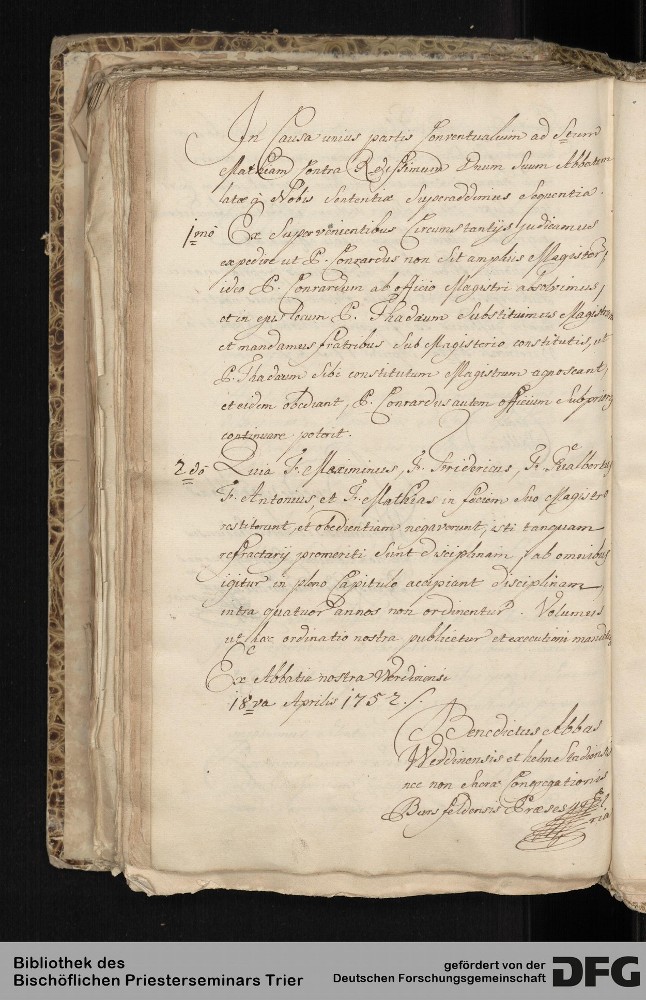 In Causa unius partis Conventualium ad Stum
Mathiam Contra Rdissimum Dnum Suum Abbatem
latæ a Nobis Sententiæ Superaddimus Sequentia.
1mo Ex Supervenientibus Circumstantijs judicamus
expedire ut P. Conrardus non Sit amplius Magister,
ideo P. Conrardum ab officio Magistri absolvimus,
et in ejus locum P. Thadæum Substituimus Magistrum
et mandamus fratribus Sub Magisterio constitutis, ut
P. Thadæum Sibi constitutum Magistrum agnoscant,
et eidem obediant, P. Conrardus autem officium Subprioris
continuare poterit.
2do Quia F. Maximinus, F. Fridericus, F. Gualbertus
F. Antonius, et F. Mathias in faciem Suo Magistro
restiterunt, et obedientiam negaverunt, isti tanquam
refractarij promeriti Sunt disciplinam, ab omnibus
igitur in pleno Capitulo accipiant disciplinam,
intra quatuor annos non ordinentur. Volumus
ut hæc ordinatio nostra publicetur et executioni mandetur
Ex Abbatia nostra Werdinensi
18va Aprilis 1752.
Benedictus Abbas
Werdinensis et helmstadiensis
nec non Sacræ Congregationis
Bursfeldensis Præses
Bibliothek des
Bischöflichen Priesterseminars Trier
gefördert von der
Deutschen Forschungsgemeinschaft
DFG